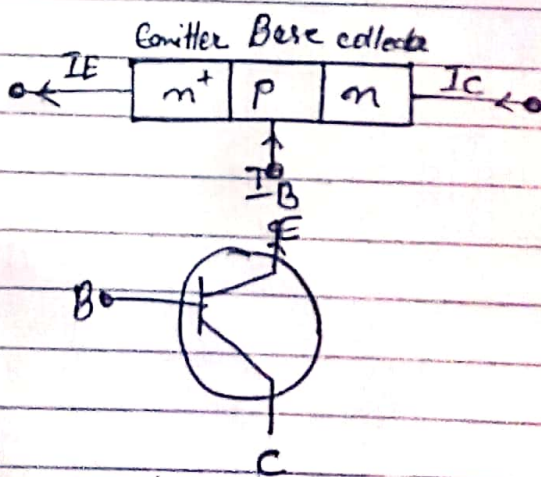 Emitter Base collector
IE n⁺ p n IC
IB
E
B
C